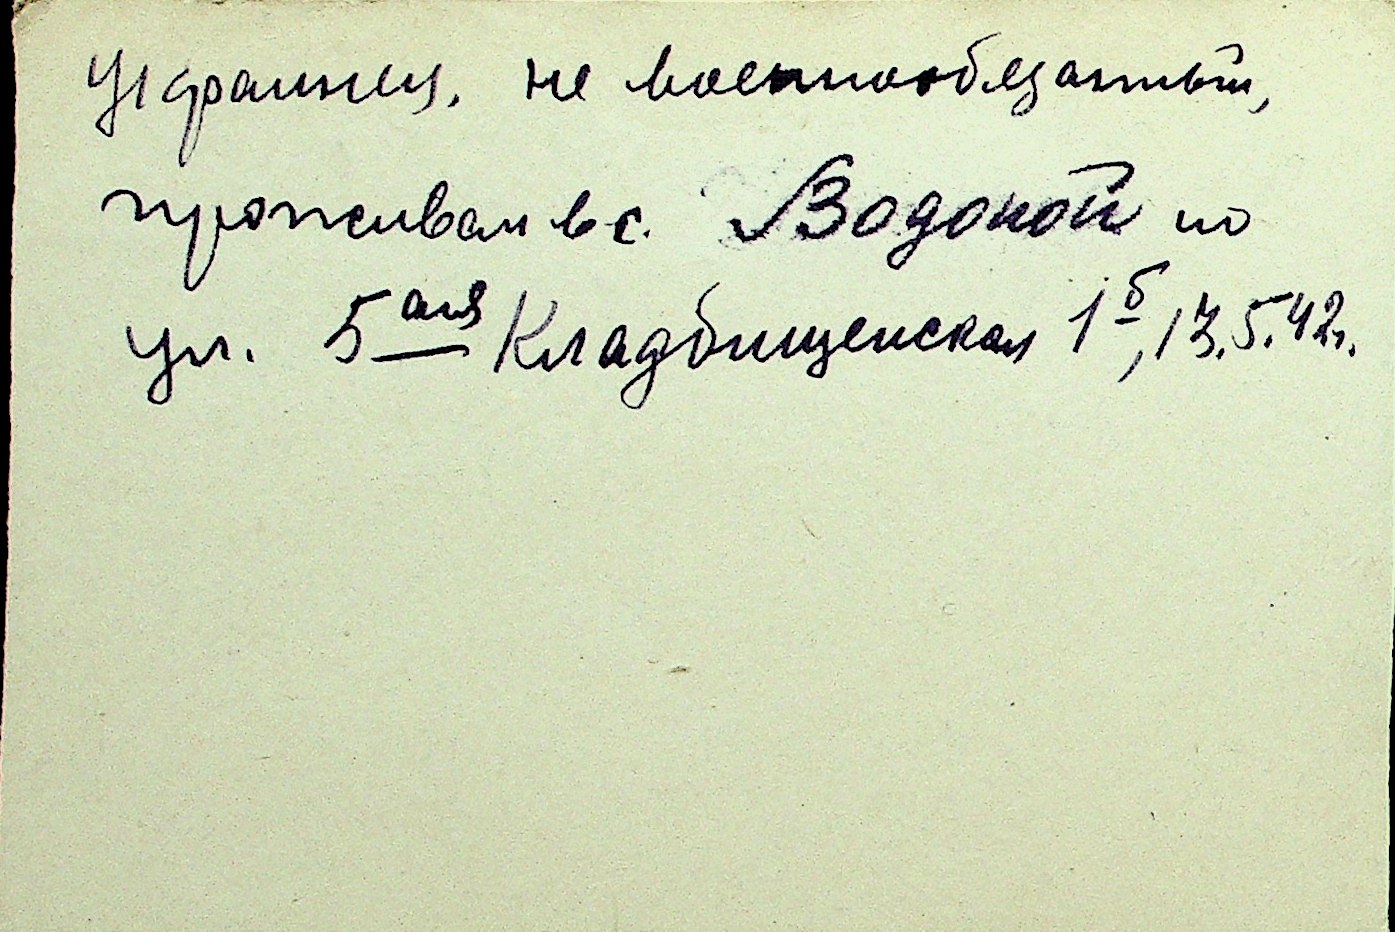 Украинец, не военнообязанный,
проживал в с. Водопой по
ул. 5 ая Кладбищенская 1б, 13.5.42г.